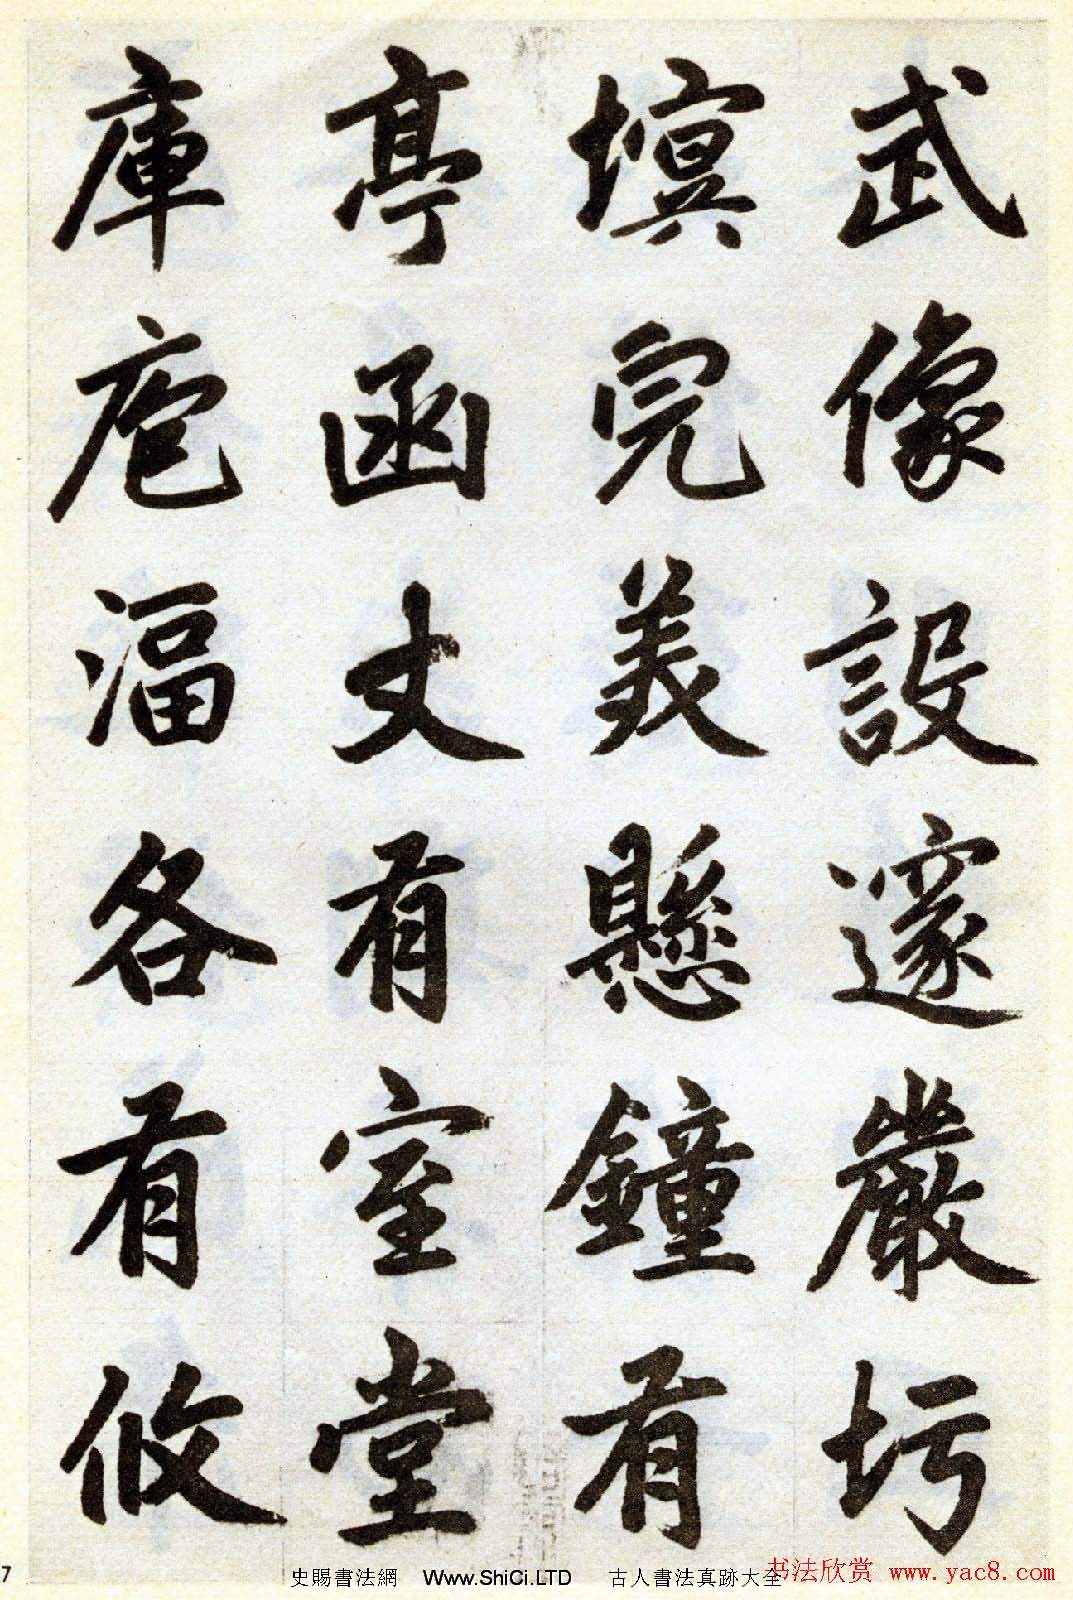 武像設邃嚴圬
塓完美懸鐘有
亭函丈有室堂
庫庖湢各有攸
7
史賜書法網 Www.ShiCi.LTD 古人書法真跡大全
书法欣赏 www.yac8.com